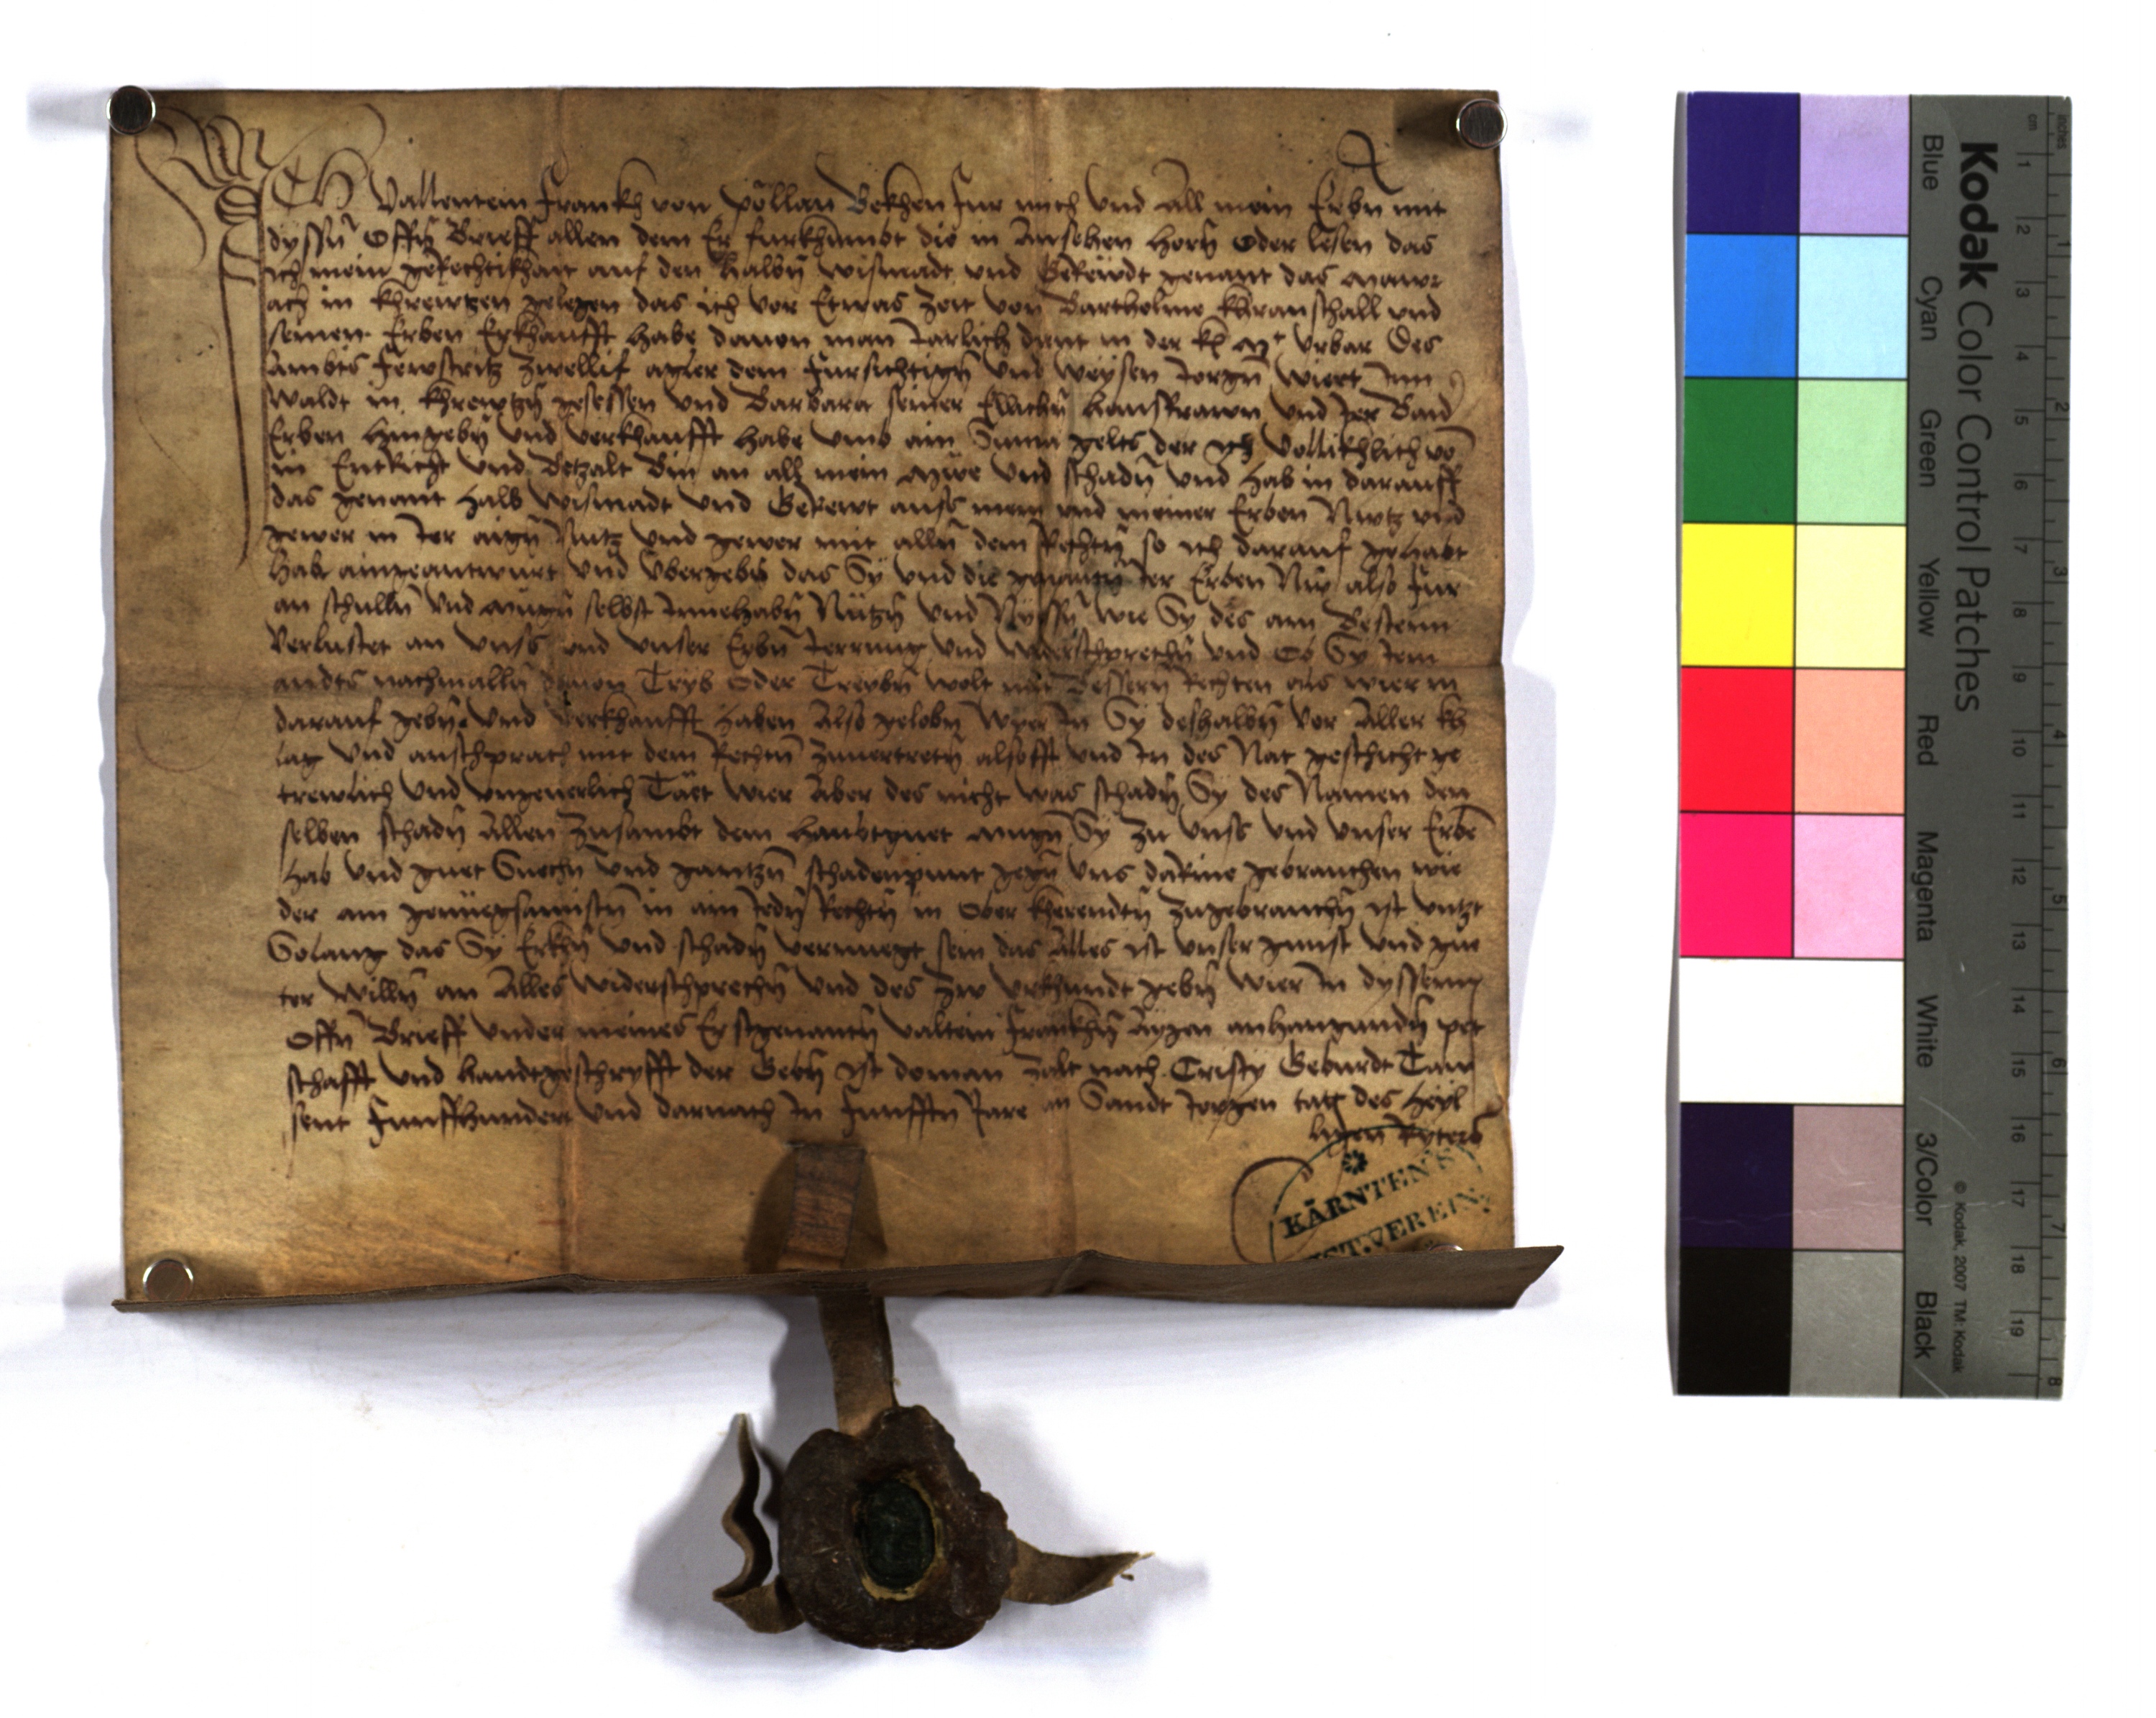 Ich Vallentein Frankh von Pöllan Bekhen fur mich und All mein Erbn mit
dyssn Offn Brieff allen dem Er furkhumbt die in Ansehen horn Oder lesen das
ich mein gerechtikhait auf den halbn wismadt und Gerewdt genant das
ach in khrewtzen gelegen das ich vor Etwas Zeit von Bartholme khranschall und
seinen Erben Erkhaufft habe dauon man Jarlich dint in der urbar Des
Ambts Fewstritz Zwellif agler dem fursichtign und weysen Jorgn wiert Jnn
Waldt in khrewtzn gesessen und Barbara seiner Elichn hausfrawn und Jer Baid
Erben hingebn und verkhaufft habe umb ain Suma gelts der ich vollikhlich von
in Entricht und Betzalt Bin an all mein mwe und schadn und hab in darauff
das genant halb wismadt und Gerewt auss mein und meiner Erben Nutz und
gewer in Jer aign Nutz und gewer mit alln dem Rechtn so ich darauf gehabt
hab aingeantwurt und ubergebn das Sy und die genantn Jer Erben Nu also fur
an schulln und mugn selbst Jnnehabn Nutzn und Nyssn wie Sy des am Besteinn
Verlustet an unss und unser Erbn Jerrung und widerschprechn und Ob Sy Jem
andts nachmalln dauon Tryb Oder Treybn wolt mit Bessern Rechten als wier in
darauf gebn und verkhaufft haben Also gelobn wyer Jn Sy deshalbn vor Aller kh
lag und anschprach mit dem Rechtn Zuuertretn alsofft und Jn des Nat geschicht ge
trewlich und ungeuerlich Tätt wier Aber des nicht was schadn Sy des Namen den
selben schadn Allen Zusambt dem haubtguet mugn Sy Zu unss und unser Erben
hab und guet Suechn und gantzn schadenpunt gegn uns darine gebrauchen wie
der am genuegsamistn in ain Jedn Rechtn in Ober kherendtn Zugebrauchn ist untzt
Solang das Sy Erkhn und schadn vernuegt sein das Alles ist unser gunst und gue
ter willn an Alles widerschprechn und des Zw urkhundt gebn wier Jn dyssenn
Offn Brieff under meines Erstgenantn valtein Frankhn Aygen anhangundn pet
schafft und handtgeschryfft der Gebn ist doman Zalt nach Cristy Geburdt Taw
sent Funffhundert und darnach Jn Funfftn Jare an Sandt Jorgen tag des heyl
ligen Ryters
KÄRNTEN'S
IST.VEREIN.
Kodak Color Control Patches
Blue Cyan Green Yellow Red Magenta White 3/Color Black
© Kodak, 2007 TM: Kodak
inches 1 2 3 4 5 6 7 8
cm 1 2 3 4 5 6 7 8 9 10 11 12 13 14 15 16 17 18 19